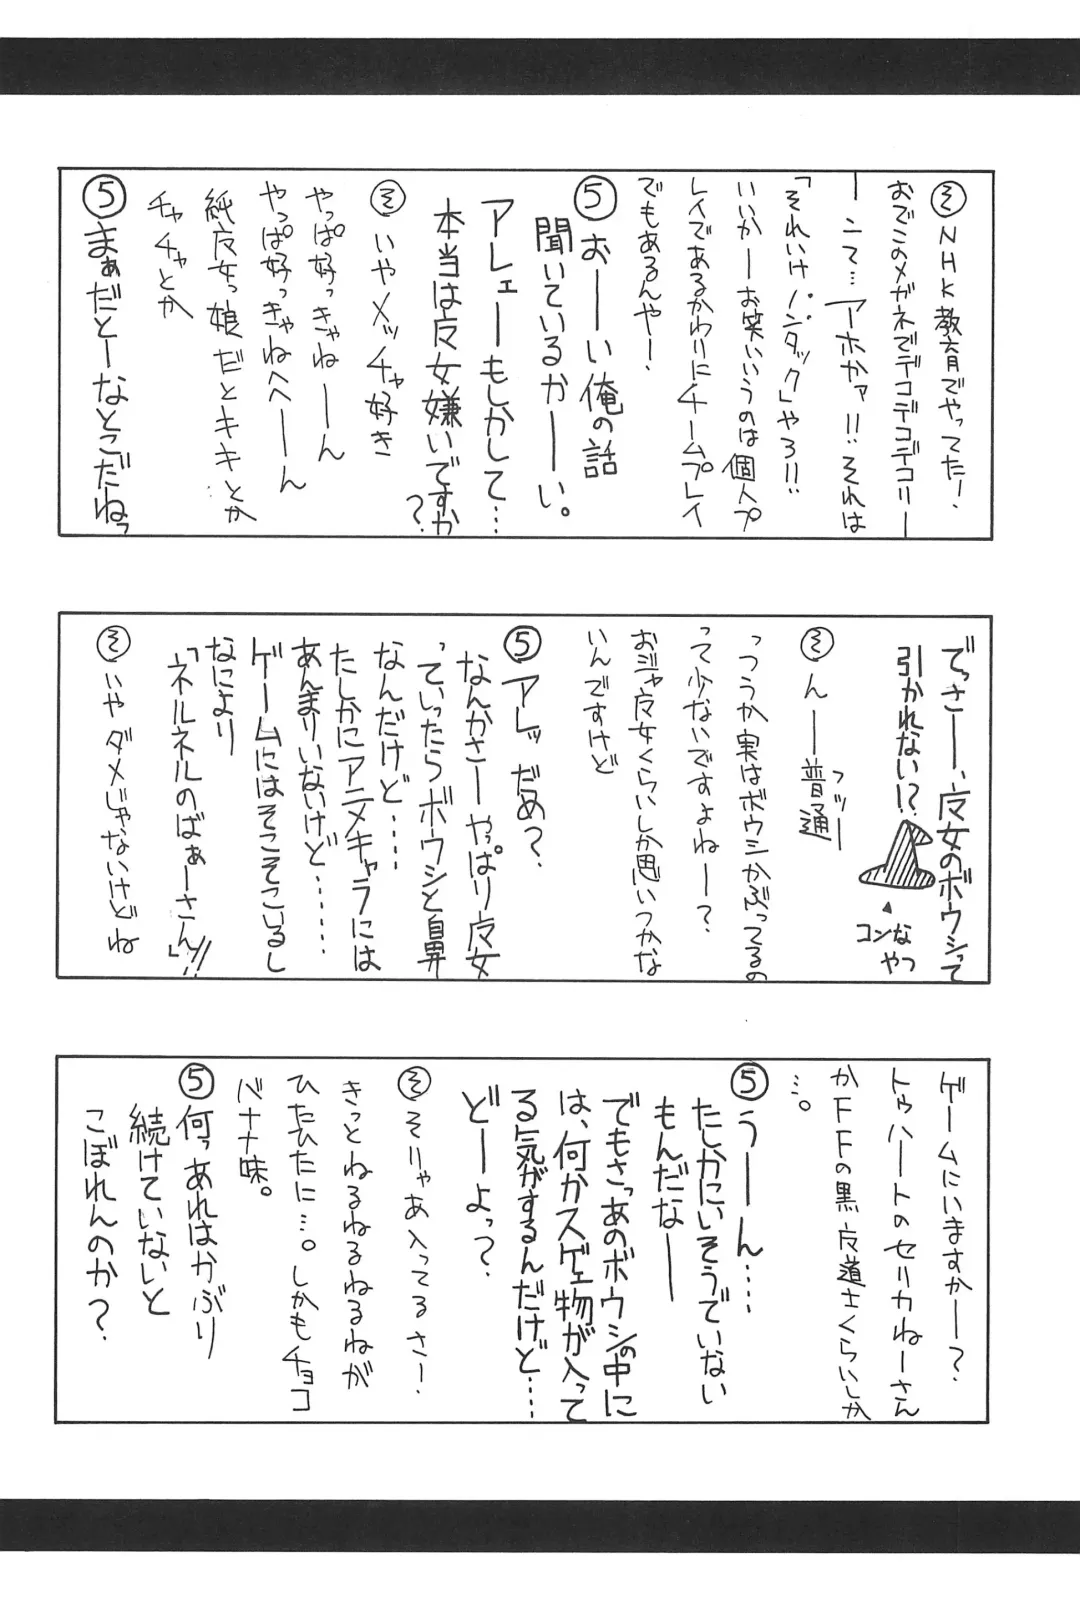 そNHK教育でやってた!
おでこのメガネでデコデコデコリー
ーンて…アホかァ!!それは
「それいけノンタック」やろ!!
いいかーお笑いいうのは個人プ
レイであるかわりにチームプレイ
でもあるんや!
5おーい俺の話
聞いているかーい。
アレェーもしかして…
本当は女嫌いですか?
そいやメッチャ好き
やっぱ好っきゃねーん
やっぱ好っきゃねへーん
純女っ娘だとキキとか
チャチャとか
5まぁだとーなとこだねっ
でっさー、女のボウシって
引かれない!?
コンな
やつ
そんー普通
フツー
っつうか実はボウシかぶってるの
って少ないですよねー?
おジャ女くらいしか思いつかな
いんですけど
5アレッだめ?
なんかさーやっぱり女
っていったらボウシと自界
なんだけど……
たしかにアニメキャラには
あんまりいないけど……
ゲームにはそこそこいるし
なにより
「ネルネルのばぁーさん」
そいやダメじゃないけどね
ゲームにいますかー?
トゥハートのセリカねーさん
かFFの黒道士くらいしか
…。
5うーん……
たしかにいそうでいない
もんだなー
でもさっあのボウシの中に
は、何かスゲェ物が入って
る気がするんだけど……
どーよっ?
そそりゃあ入ってるさー!
きっとねるねるねるねが
ひたひたに…。しかもチョコ
バナナ味。
5何っあれはかぶり
続けていないと
こぼれんのか?